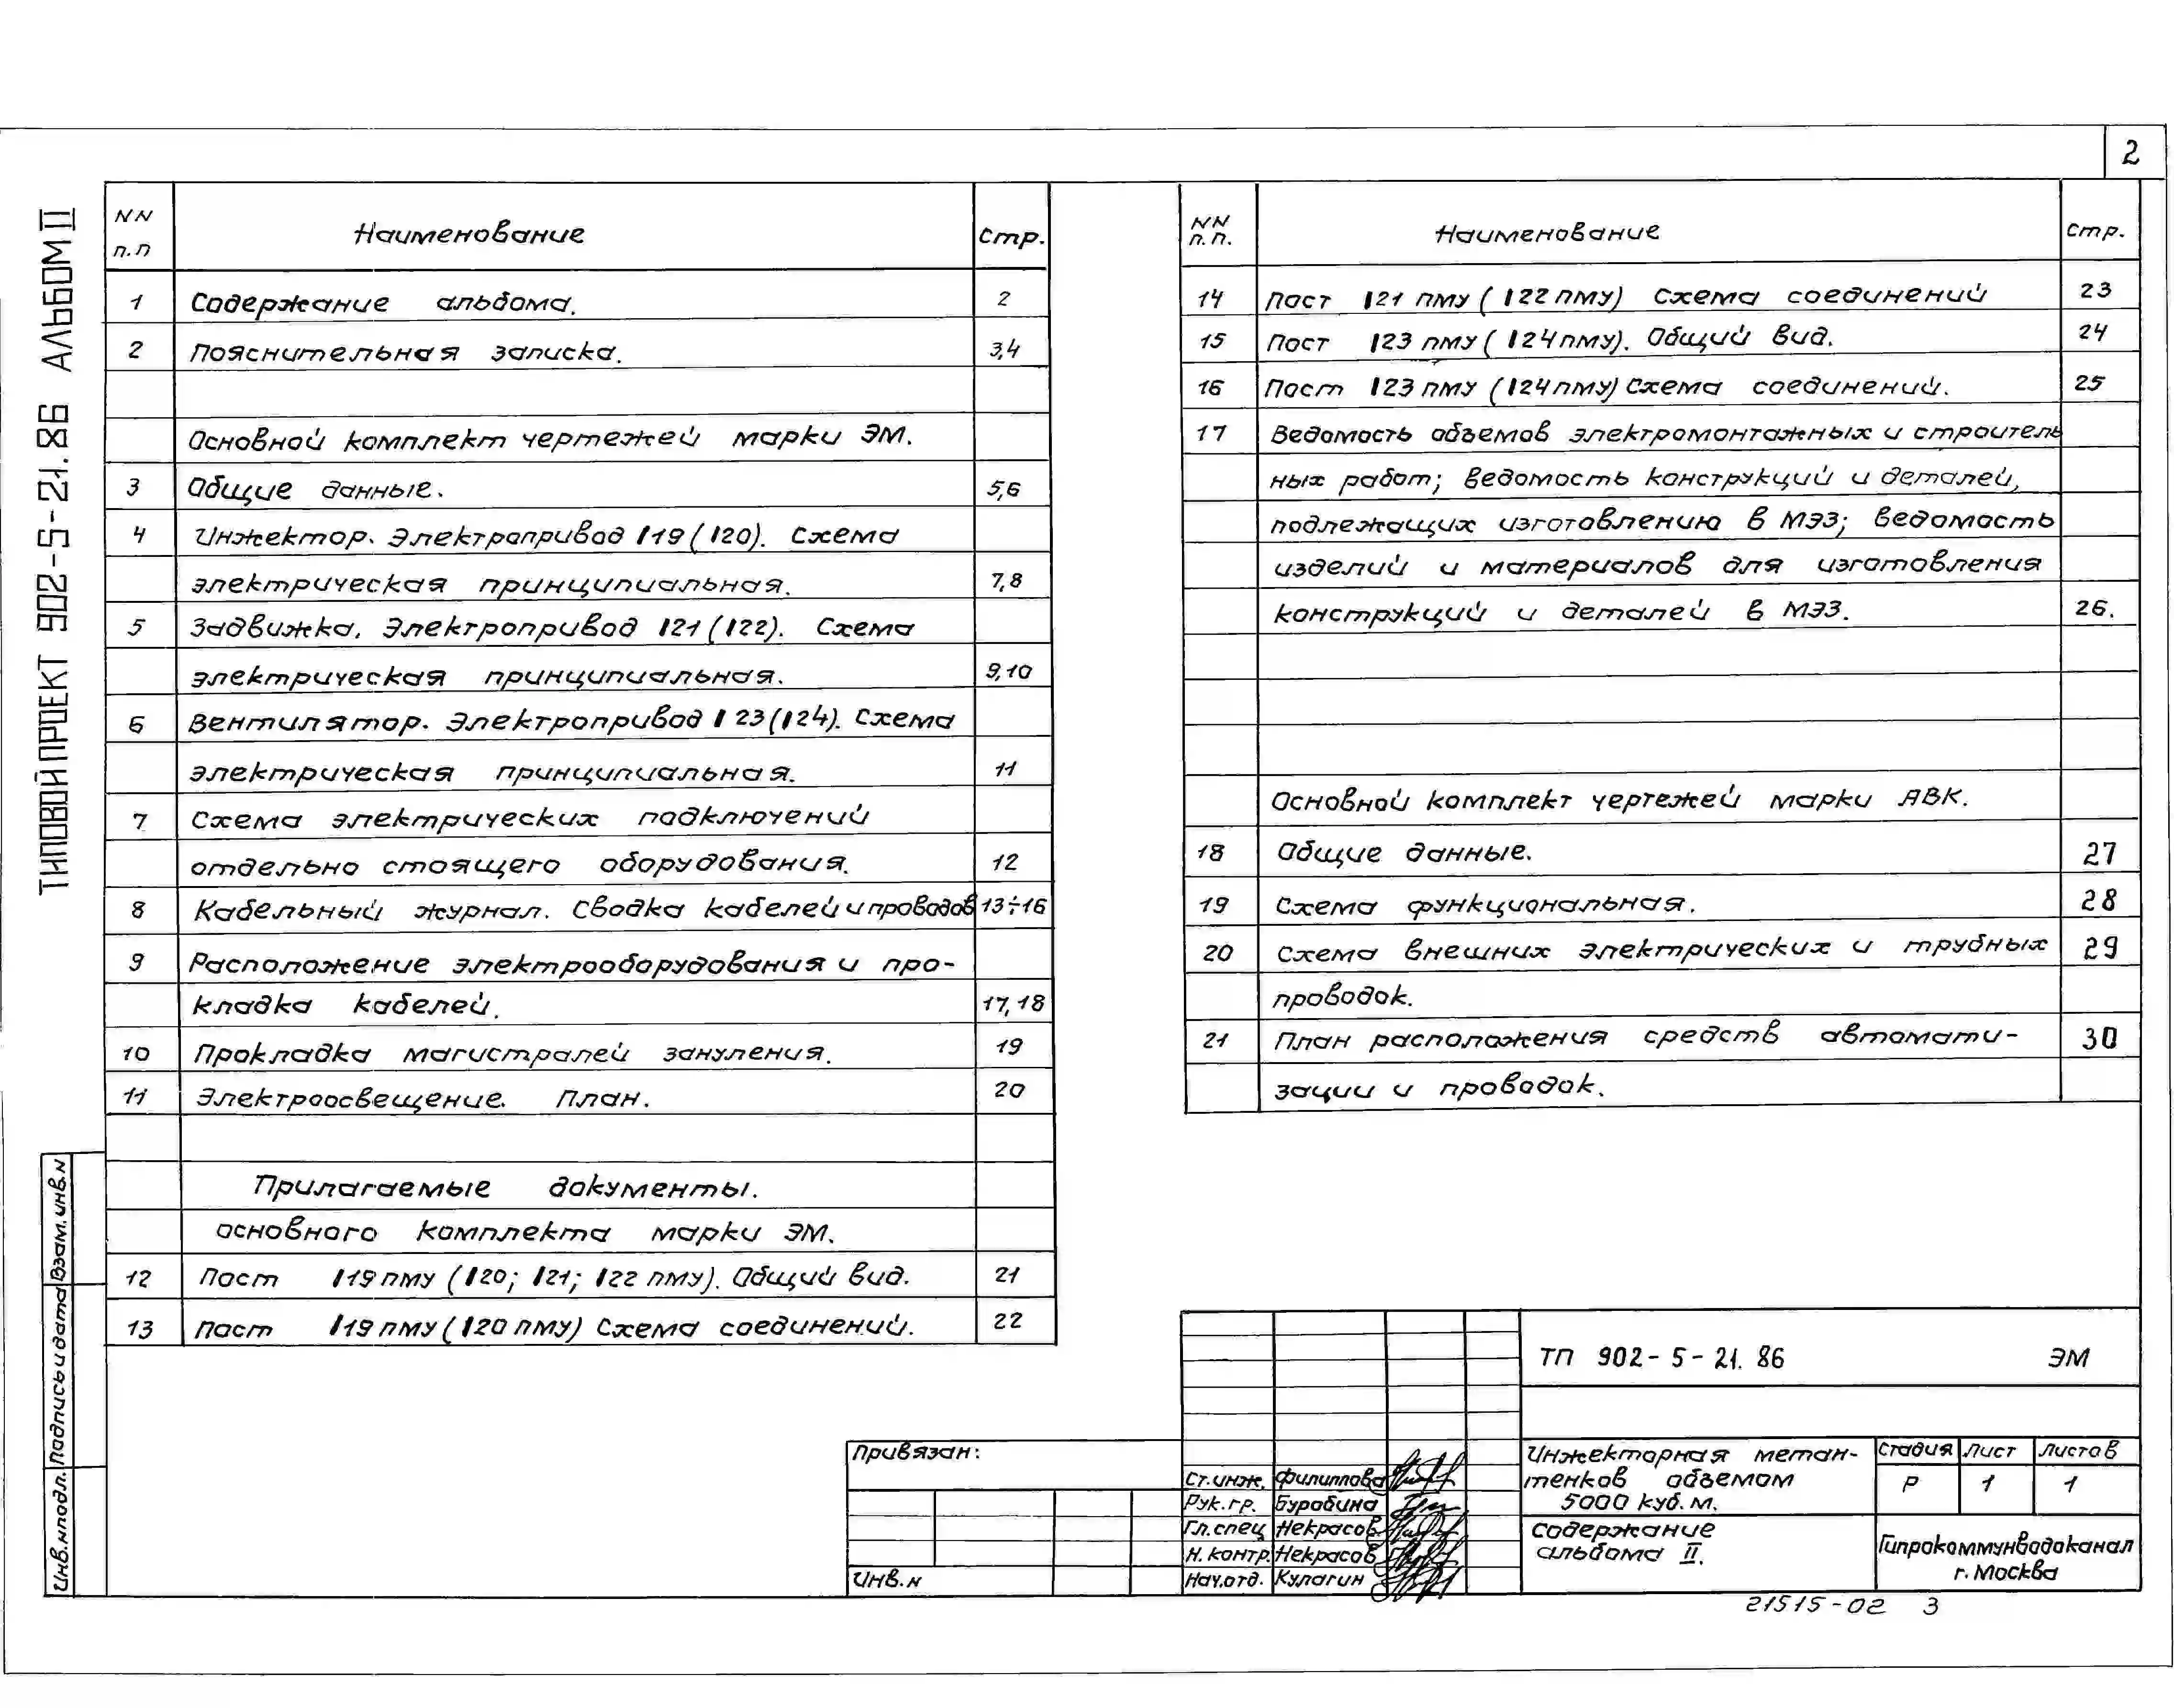 2
ТИПОВОЙ ПРОЕКТ 902-5-21.86 АЛЬБОМ II
NN п.п Наименование Стр.
1 Содержание альбома. 2
2 Пояснительная записка. 3,4
Основной комплект чертежей марки ЭМ.
3 Общие данные. 5,6
4 Инжектор. Электропривод 119 (120). Схема
электрическая принципиальная. 7,8
5 Задвижка. Электропривод 121 (122). Схема
электрическая принципиальная. 9,10
6 Вентилятор. Электропривод 123 (124). Схема
электрическая принципиальная. 11
7 Схема электрических подключений
отдельно стоящего оборудования. 12
8 Кабельный журнал. Сводка кабелей и проводов 13÷16
9 Расположение электрооборудования и про-
кладка кабелей. 17,18
10 Прокладка магистралей зануления. 19
11 Электроосвещение. План. 20
Прилагаемые документы.
основного комплекта марки ЭМ.
12 Пост 119 пму (120; 121; 122 пму). Общий вид. 21
13 Пост 119 пму (120 пму) Схема соединений. 22
NN п.п. Наименование Стр.
14 Пост 121 пму (122 пму) Схема соединений 23
15 Пост 123 пму (124 пму). Общий вид. 24
16 Пост 123 пму (124 пму) Схема соединений. 25
17 Ведомость объемов электромонтажных и строитель
ных работ; ведомость конструкций и деталей,
подлежащих изготовлению в МЭЗ; ведомость
изделий и материалов для изготовления
конструкций и деталей в МЭЗ. 26.
Основной комплект чертежей марки АВК.
18 Общие данные. 27
19 Схема функциональная. 28
20 Схема внешних электрических и трубных 29
проводок.
21 План расположения средств автомати- 30
зации и проводок.
Взам. инв. N
Подпись и дата
Инв. N подл.
Привязан:
Инв. N
Ст. инж. Филиппова
Рук. гр. Бурабина
Гл. спец Некрасов
Н. контр. Некрасов
Нач. отд. Кулагин
ТП 902-5-21.86 ЭМ
Инжекторная метан-
тенков объемом
5000 куб. м.
Стадия Лист Листов
Р 1 1
Содержание
альбома II.
Гипрокоммунводоканал
г. Москва
21515-02 3